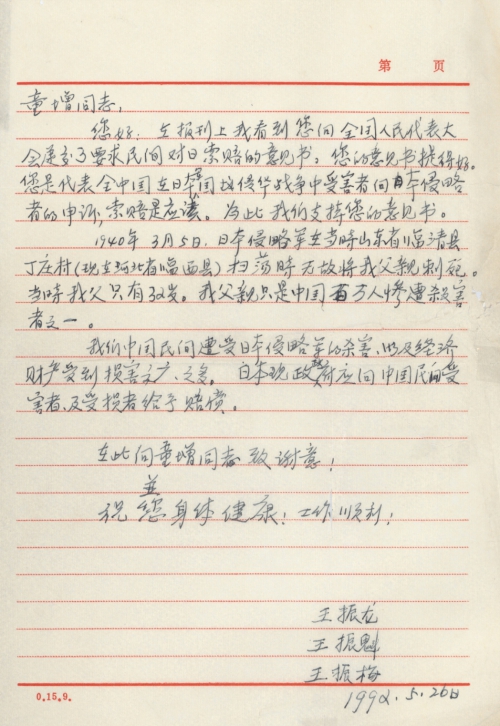 第 页
童增同志，
您好：在报刊上我看到您向全国人民代表大
会递交了要求民间对日索赔的意见书，您的意见书提得好。
您是代表全中国在日本国侵华战争中受害者向日本侵略
者的申诉，索赔是应该。为此我们支持您的意见书。
1940年3月5日，日本侵略军在当时山东省临清县
丁庄村(现在河北省临西县)扫荡时无故将我父亲刺死。
当时我父只有32岁。我父亲只是中国百万人惨遭杀害
者之一。
我们中国民间遭受日本侵略军的杀害，以及经济
财产受到损害之广、之多。日本现政府应向中国民间受
害者及受损者给予赔偿。
在此向童增同志致谢意！
并
祝您身体健康！工作顺利！
王振龙
王振魁
王振梅
1992.5.26日
0.15.9.